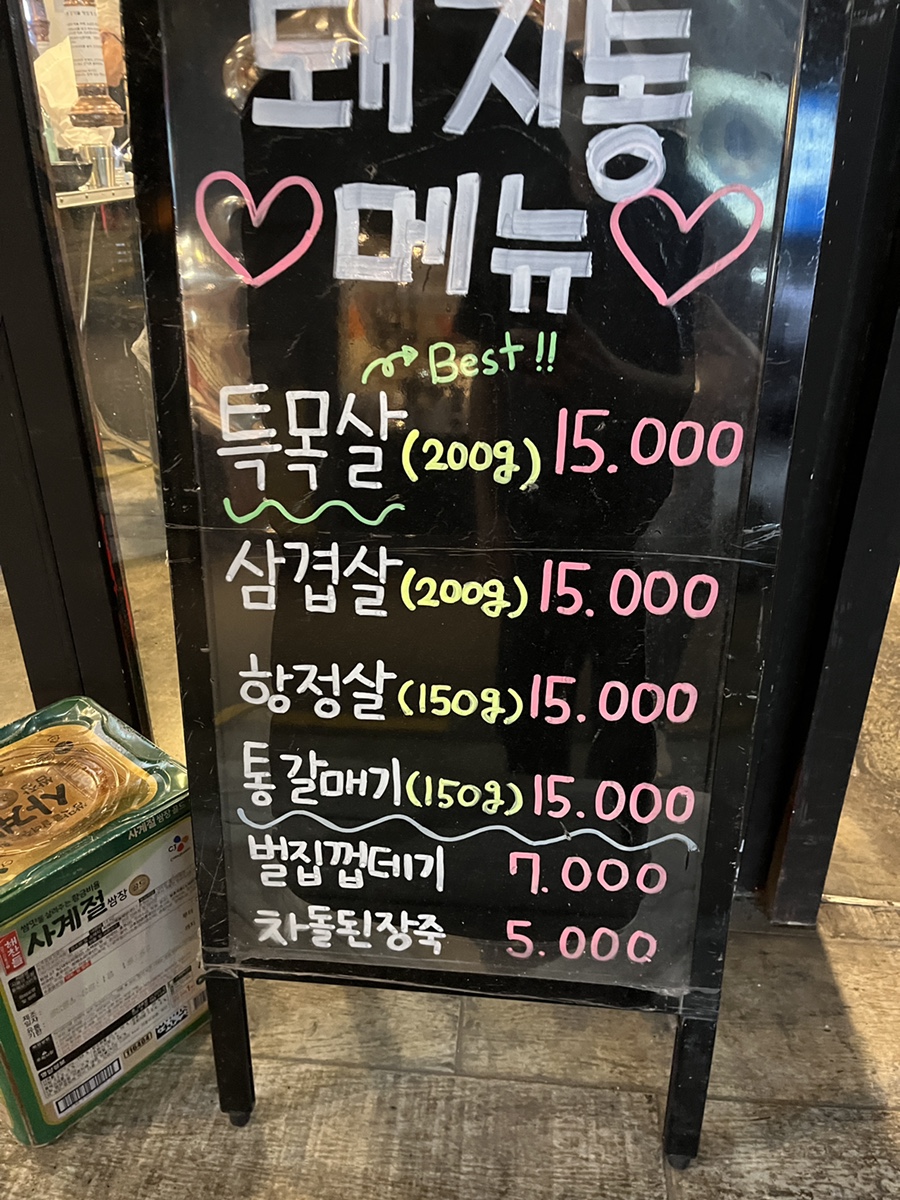 돼지통
메뉴
Best !!
특목살 (200g) 15.000
삼겹살 (200g) 15.000
항정살 (150g) 15.000
통갈매기 (150g) 15.000
벌집껍데기 7.000
차돌된장죽 5.000
사계절 쌈장
CJ
해찬들
사계절 쌈장